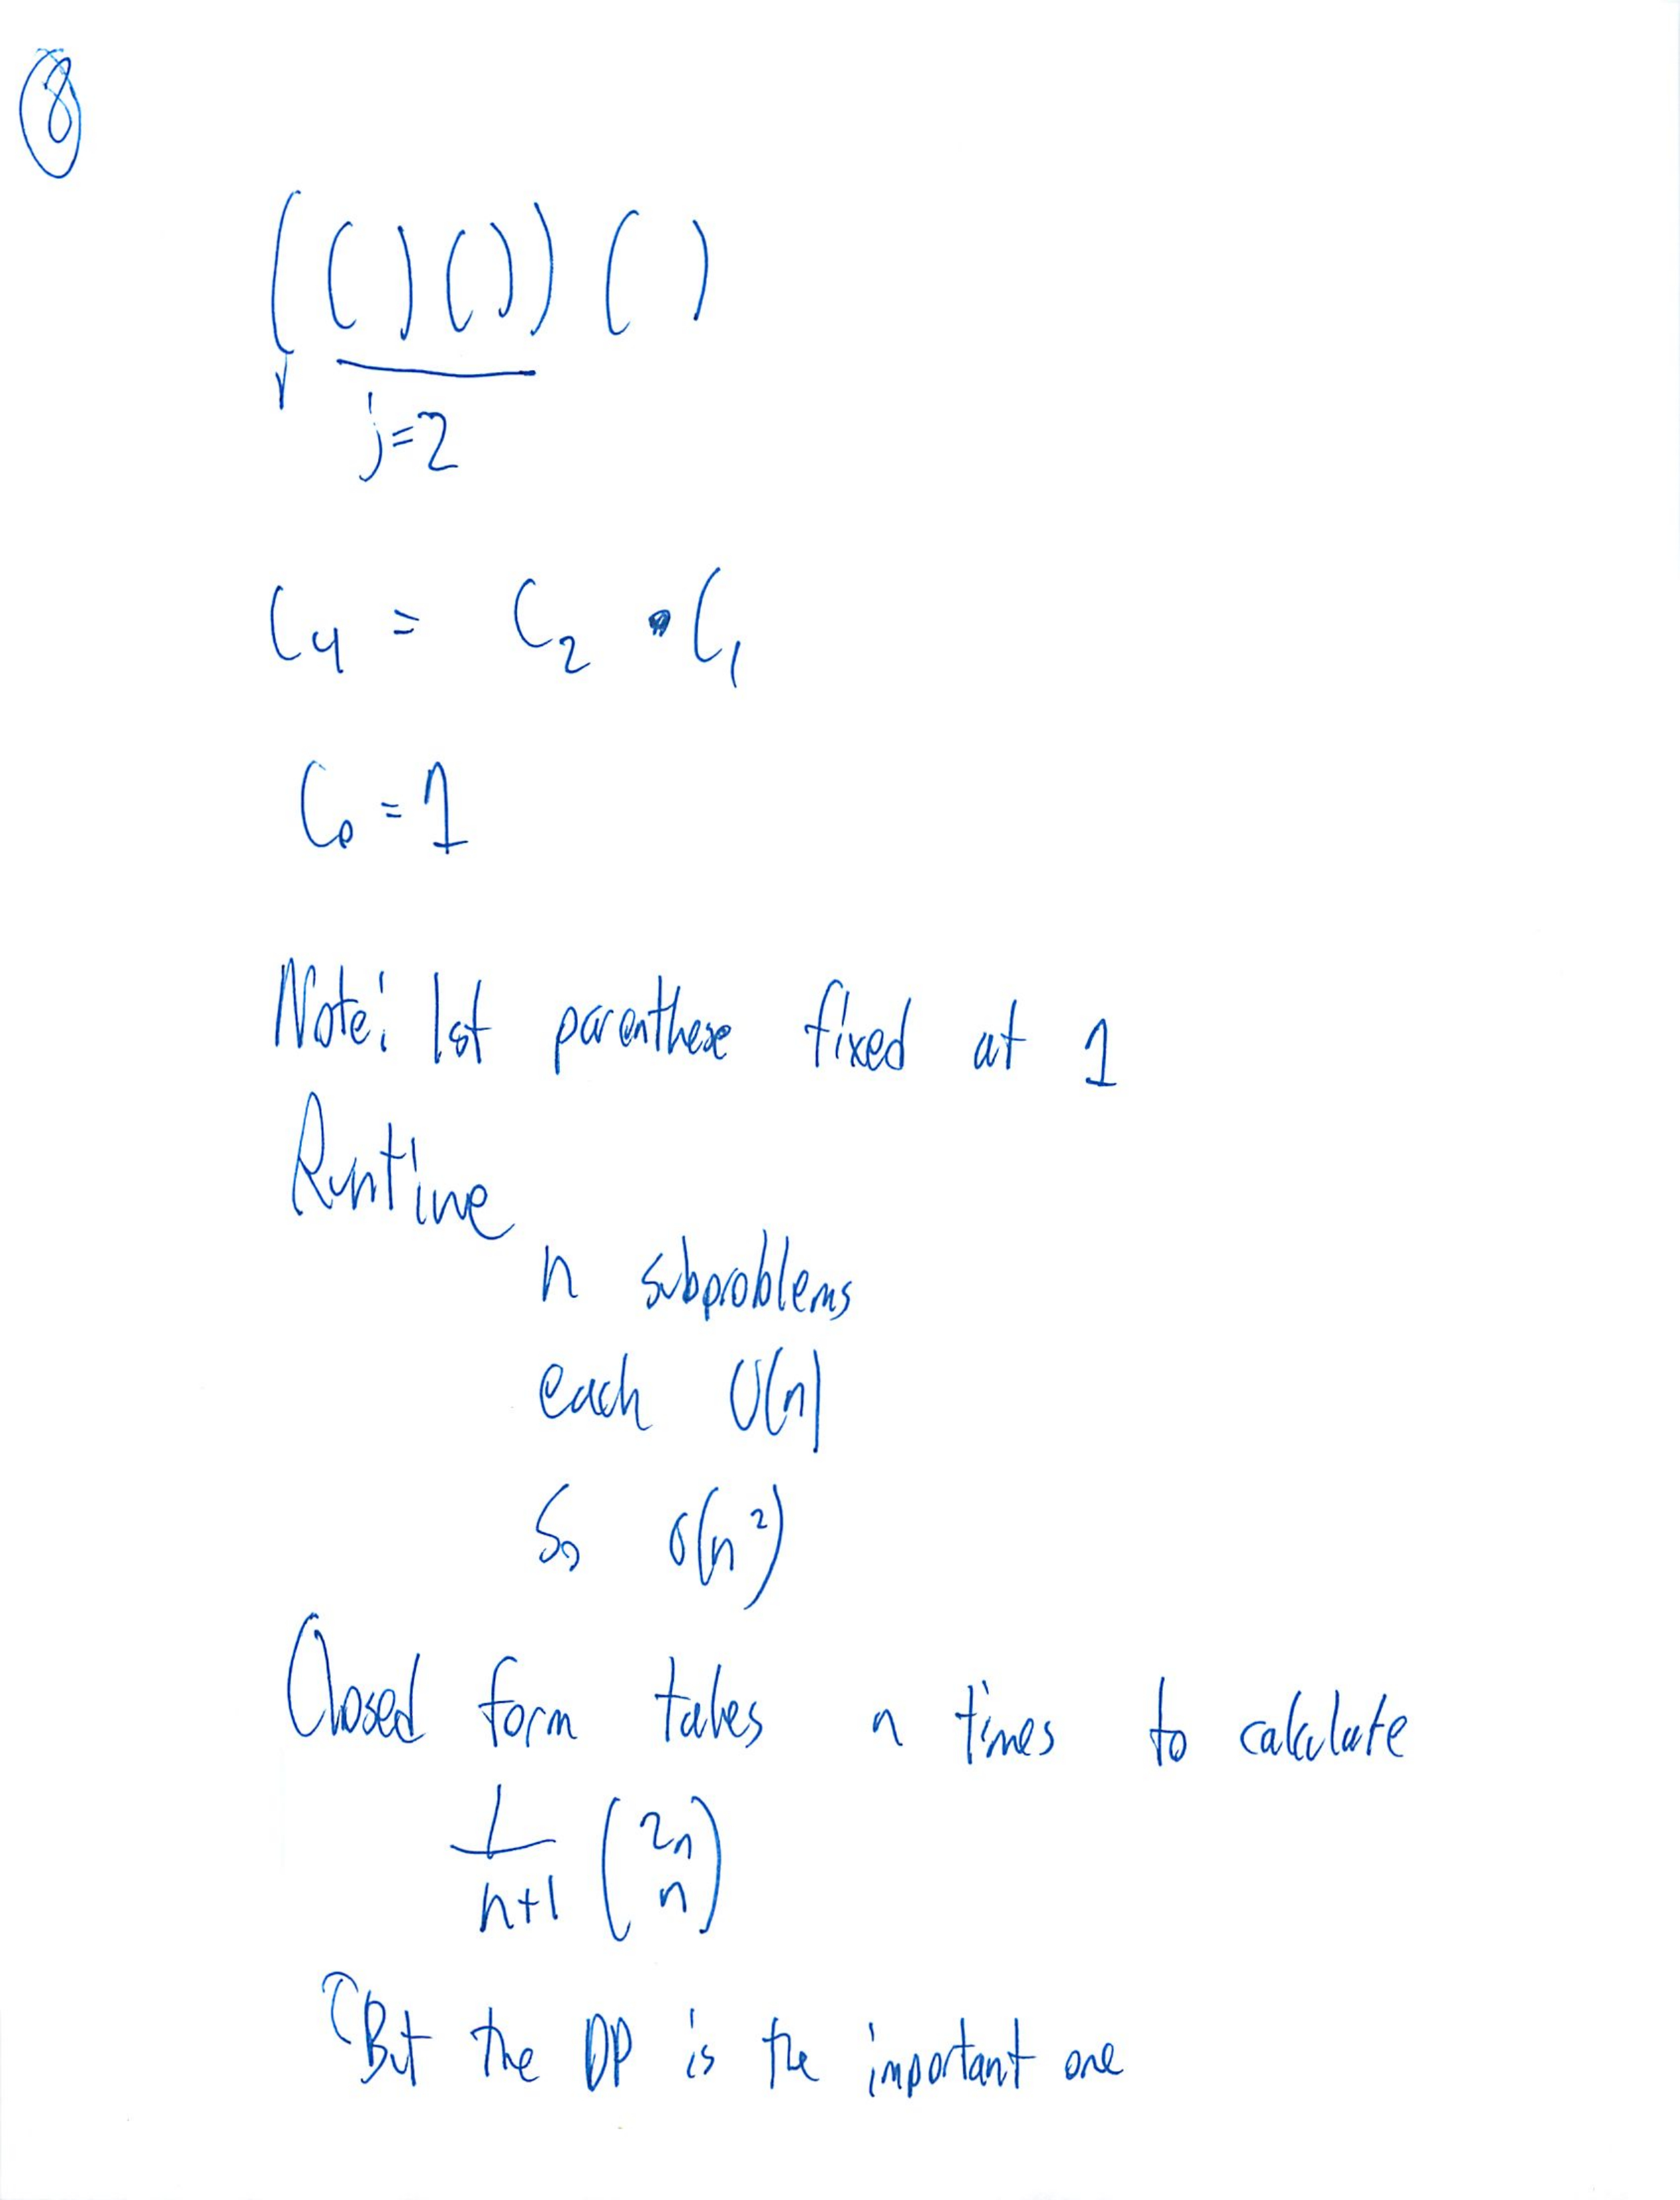 8
(()())()
j=2
C4 = C2 • C1
C0 = 1
Note: 1st parenthese fixed at 1
Runtime
n subproblems
each O(n)
So O(n²)
Closed form takes n times to calculate
1/(n+1) (2n n)
But the DP is the important one